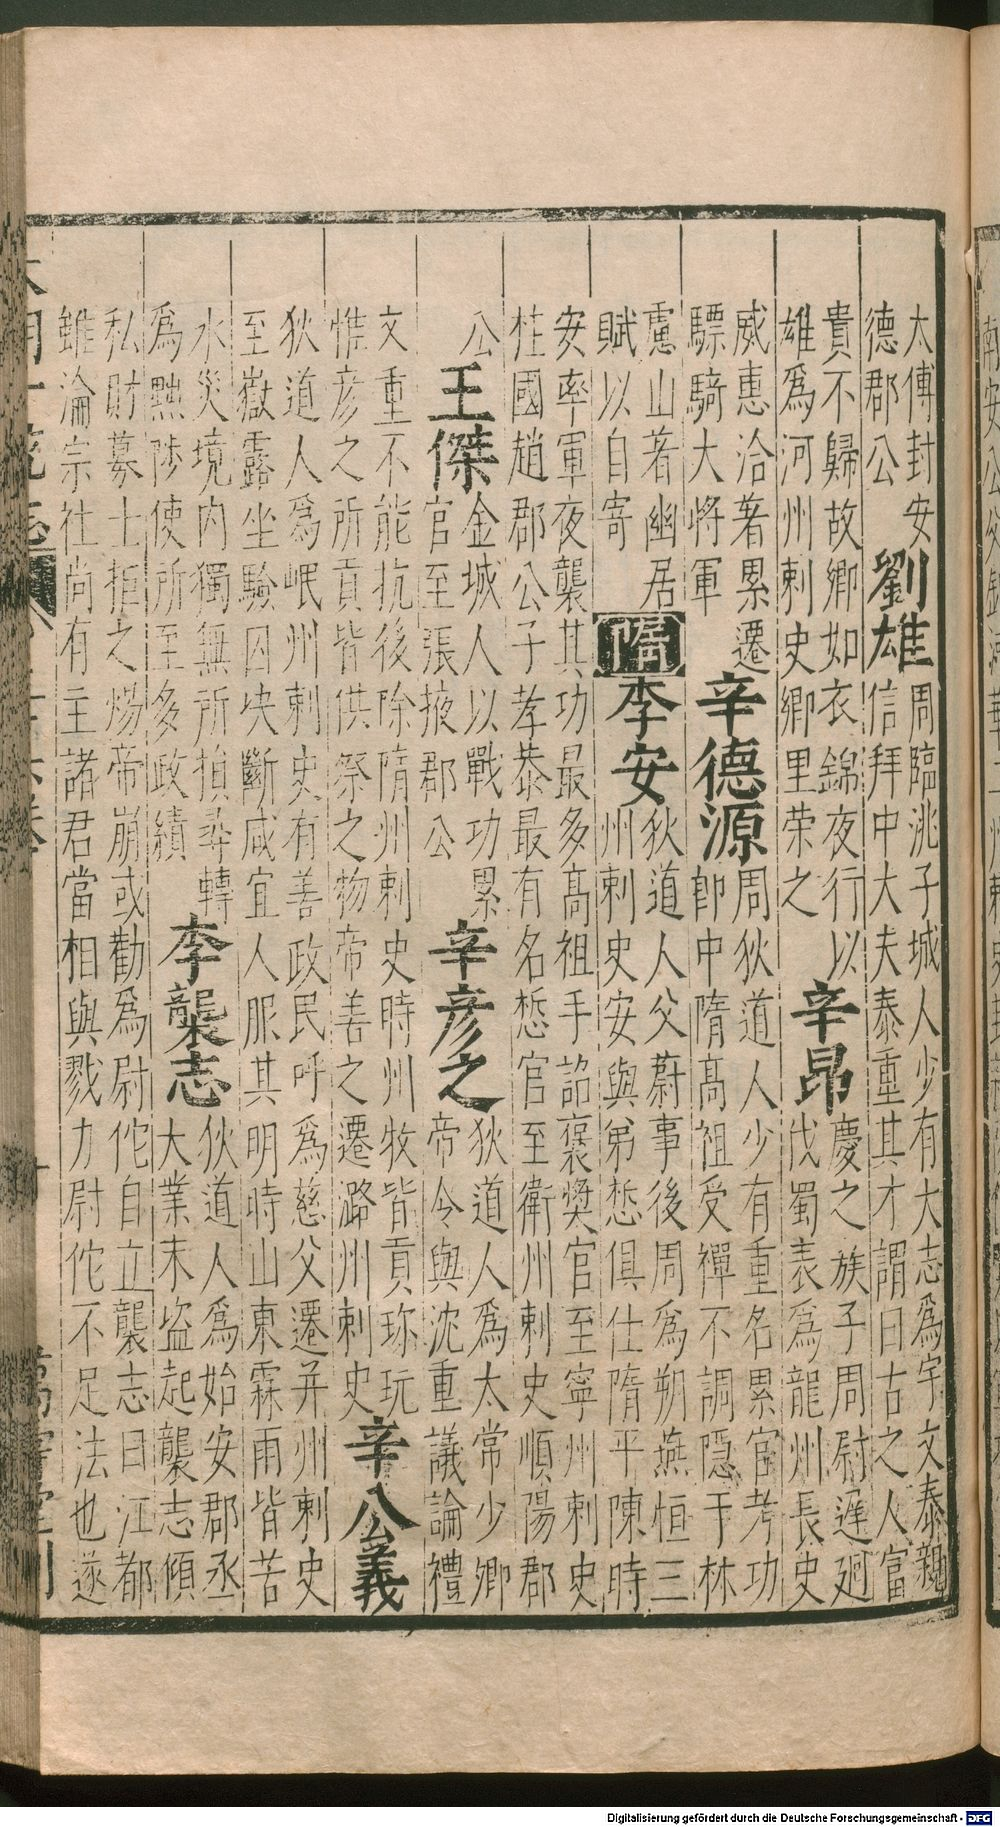 太傅封安
德郡公
劉雄
周臨洮子城人少有大志為宇文泰親
信拜中大夫泰重其才謂曰古之人富
貴不歸故鄉如衣錦夜行以
雄為河州刺史鄉里荣之
辛昂
慶之族子周尉遲迥
伐蜀表為龍州長史
威惠洽著累遷
驃騎大將軍
辛德源
周狄道人少有重名累官考功
郎中隋高祖受禪不調隱于林
慮山著幽居
賦以自寄
隋
李安
狄道人父蔚事後周為朔燕恒三
州刺史安與弟悊俱仕隋平陳時
安率軍夜襲其功最多高祖手詔褒奬官至寧州刺史
柱國趙郡公子孝恭最有名悊官至衛州刺史順陽郡
公
王傑
金城人以戰功累
官至張掖郡公
辛彥之
狄道人為太常少卿
帝令與沈重議論禮
文重不能抗後除隋州刺史時州牧皆貢珎玩
惟彥之所貢皆供祭之物帝善之遷潞州刺史
辛公義
狄道人為岷州刺史有善政民呼為慈父遷并州刺史
至嶽露坐驗囚决斷咸宜人服其明時山東霖雨皆苦
水災境内獨無所損尋轉
為黜陟使所至多政績
李襲志
狄道人為始安郡丞
大業末盗起襲志傾
私財募士拒之煬帝崩或勸為尉佗自立襲志曰江都
雖淪宗社尚有主諸君當相與戮力尉佗不足法也遂
Digitalisierung gefördert durch die Deutsche Forschungsgemeinschaft - DFG